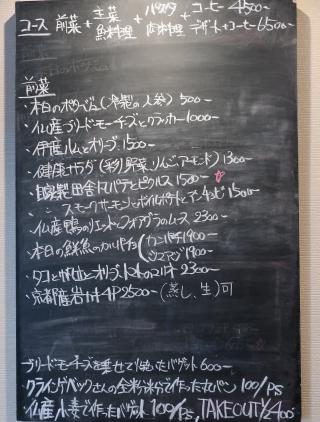 コース 前菜 + 主菜 魚料理 + パスタ 肉料理 + コーヒー 4500-
デザート+コーヒー 6500-
前菜
・本日のポタージュ(冷製の人参) 500-
・仏産ブリードモーチーズとクラッカー 1000-
・伊産ハムとオリーブ 1500-
・健康サラダ(彩り野菜、りんご、アーモンド) 1300-
・自家製田舎風パテとピクルス 1500-
・スモークサーモンとボイルポテトとアンチョビ 1500-
・仏産鴨のリエットとフォアグラのムース 2300-
・本日の鮮魚のカルパッチョ(カンパチ 1900-
シマアジ 1900-
・タコと オリーブ 2300-
・京都産岩ガキ 4P 2500-(蒸し、生)可
ブリードモーチーズを乗せて焼いたバゲット 600-
クライングバックさんの全粒粉で作った丸パン 100/PS
仏産小麦で作ったバゲット 100/PS, TAKEOUT 1/2 400